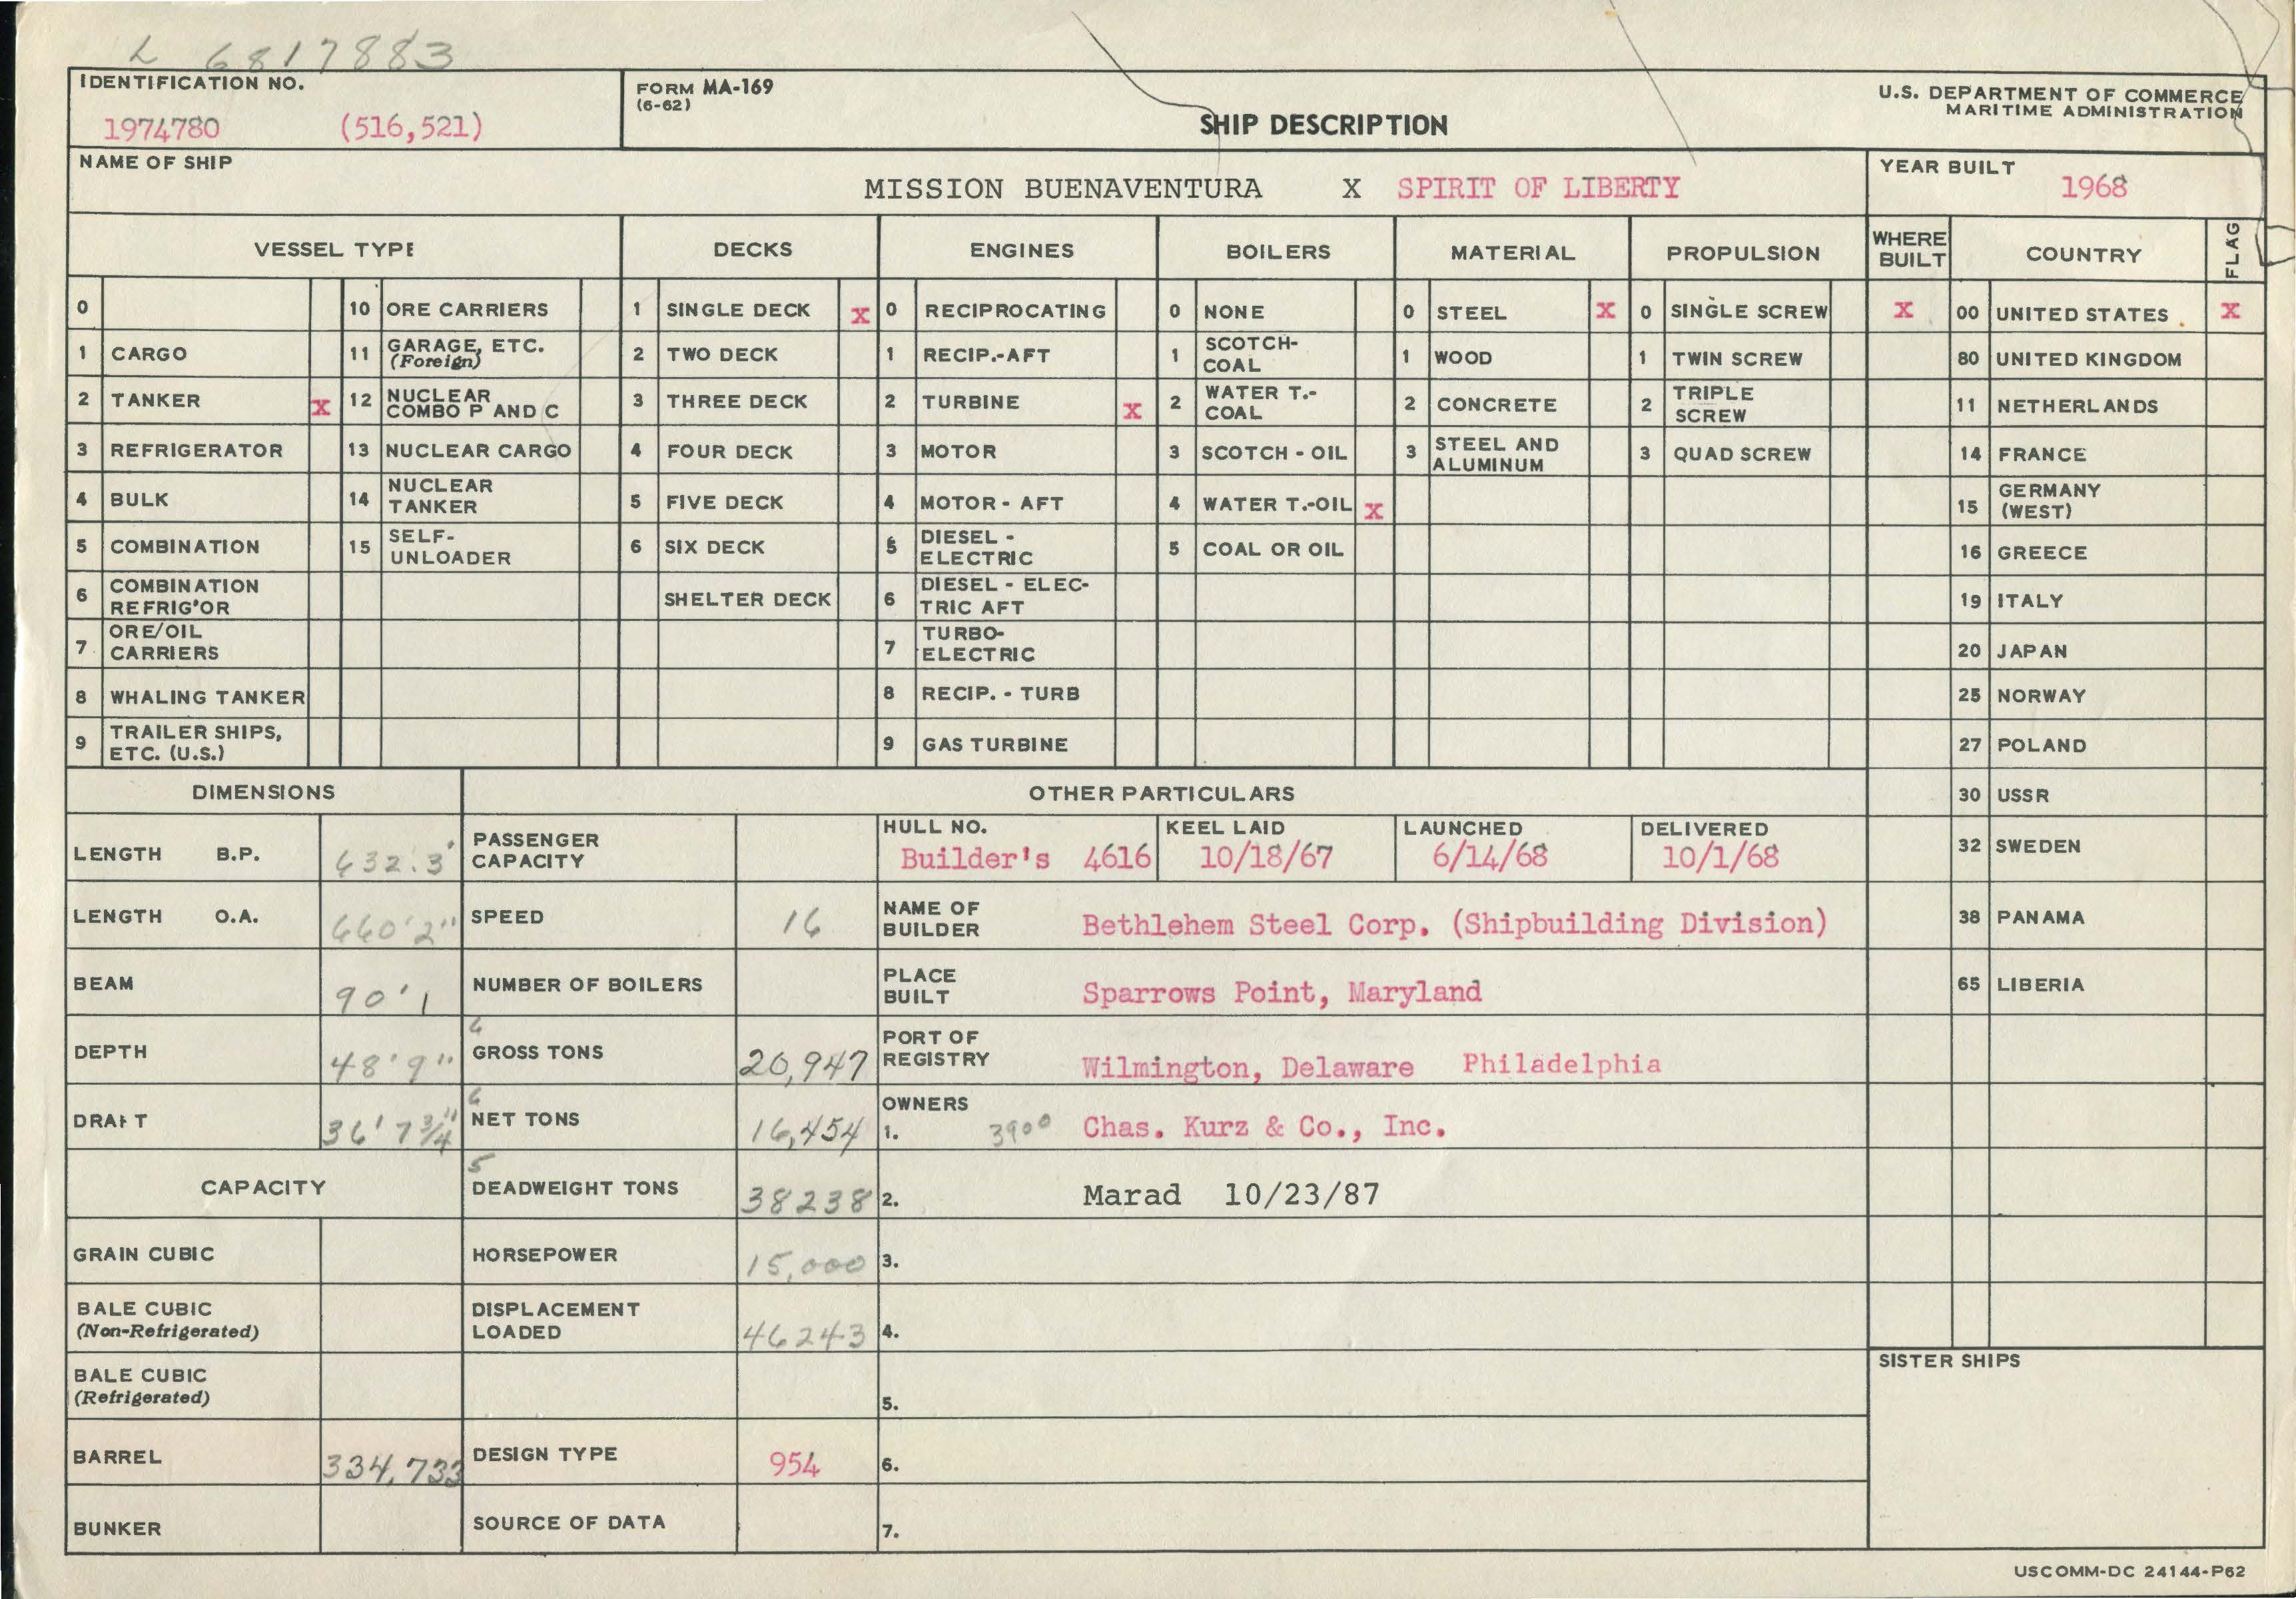 L 6817883
IDENTIFICATION NO.
1974780 (516,521)
FORM MA-169
(6-62)
SHIP DESCRIPTION
U.S. DEPARTMENT OF COMMERCE
MARITIME ADMINISTRATION
NAME OF SHIP
MISSION BUENAVENTURA X SPIRIT OF LIBERTY
YEAR BUILT
1968
VESSEL TYPE DECKS ENGINES BOILERS MATERIAL PROPULSION WHERE BUILT COUNTRY FLAG
0 10 ORE CARRIERS 1 SINGLE DECK X 0 RECIPROCATING 0 NONE 0 STEEL X 0 SINGLE SCREW X 00 UNITED STATES X
1 CARGO 11 GARAGE, ETC. (Foreign) 2 TWO DECK 1 RECIP.-AFT 1 SCOTCH-COAL 1 WOOD 1 TWIN SCREW 80 UNITED KINGDOM
2 TANKER X 12 NUCLEAR COMBO P AND C 3 THREE DECK 2 TURBINE X 2 WATER T.-COAL 2 CONCRETE 2 TRIPLE SCREW 11 NETHERLANDS
3 REFRIGERATOR 13 NUCLEAR CARGO 4 FOUR DECK 3 MOTOR 3 SCOTCH - OIL 3 STEEL AND ALUMINUM 3 QUAD SCREW 14 FRANCE
4 BULK 14 NUCLEAR TANKER 5 FIVE DECK 4 MOTOR - AFT 4 WATER T.-OIL X 15 GERMANY (WEST)
5 COMBINATION 15 SELF-UNLOADER 6 SIX DECK 5 DIESEL - ELECTRIC 5 COAL OR OIL 16 GREECE
6 COMBINATION REFRIG'OR SHELTER DECK 6 DIESEL - ELEC-TRIC AFT 19 ITALY
7 ORE/OIL CARRIERS 7 TURBO-ELECTRIC 20 JAPAN
8 WHALING TANKER 8 RECIP. - TURB 25 NORWAY
9 TRAILER SHIPS, ETC. (U.S.) 9 GAS TURBINE 27 POLAND
DIMENSIONS OTHER PARTICULARS 30 USSR
LENGTH B.P. 632.3' PASSENGER CAPACITY HULL NO. Builder's 4616 KEEL LAID 10/18/67 LAUNCHED 6/14/68 DELIVERED 10/1/68 32 SWEDEN
LENGTH O.A. 660'2" SPEED 16 NAME OF BUILDER Bethlehem Steel Corp. (Shipbuilding Division) 38 PANAMA
BEAM 90'1 NUMBER OF BOILERS PLACE BUILT Sparrows Point, Maryland 65 LIBERIA
DEPTH 48'9" 6 GROSS TONS 20,947 PORT OF REGISTRY Wilmington, Delaware Philadelphia
DRAFT 36'7 3/4" 6 NET TONS 16,454 OWNERS 1. 3900 Chas. Kurz & Co., Inc.
CAPACITY 5 DEADWEIGHT TONS 38238 2. Marad 10/23/87
GRAIN CUBIC HORSEPOWER 15,000 3.
BALE CUBIC (Non-Refrigerated) DISPLACEMENT LOADED 46243 4.
BALE CUBIC (Refrigerated) 5. SISTER SHIPS
BARREL 334,733 DESIGN TYPE 954 6.
BUNKER SOURCE OF DATA 7.
USCOMM-DC 24144-P62